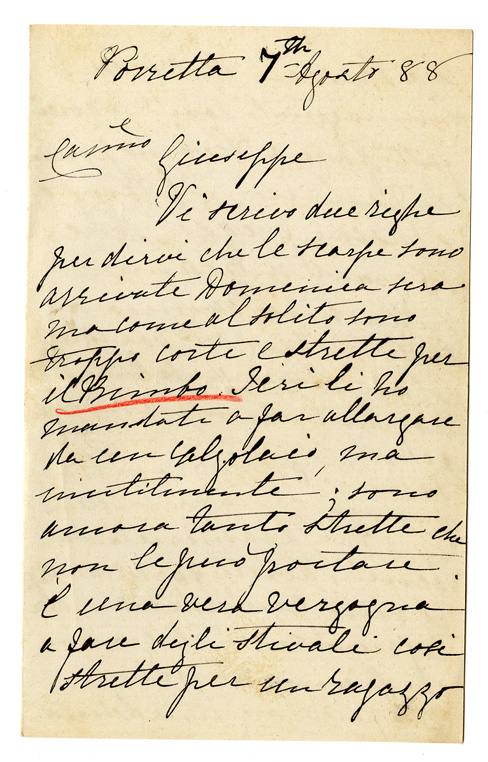 Porretta 7th Agosto 88
Carmo
Giuseppe
Vi scrivo due righe
per dirvi che le scarpe sono
arrivate Domenica sera
ma come al solito sono
troppo corte e strette per
il Bimbo. Ieri li ho
mandati a far allargare
da un Calzolaio, ma
inutilmente; sono
ancora tanto strette che
non le può portare.
È una vera vergogna
a fare degli stivali così
strette per un ragazzo